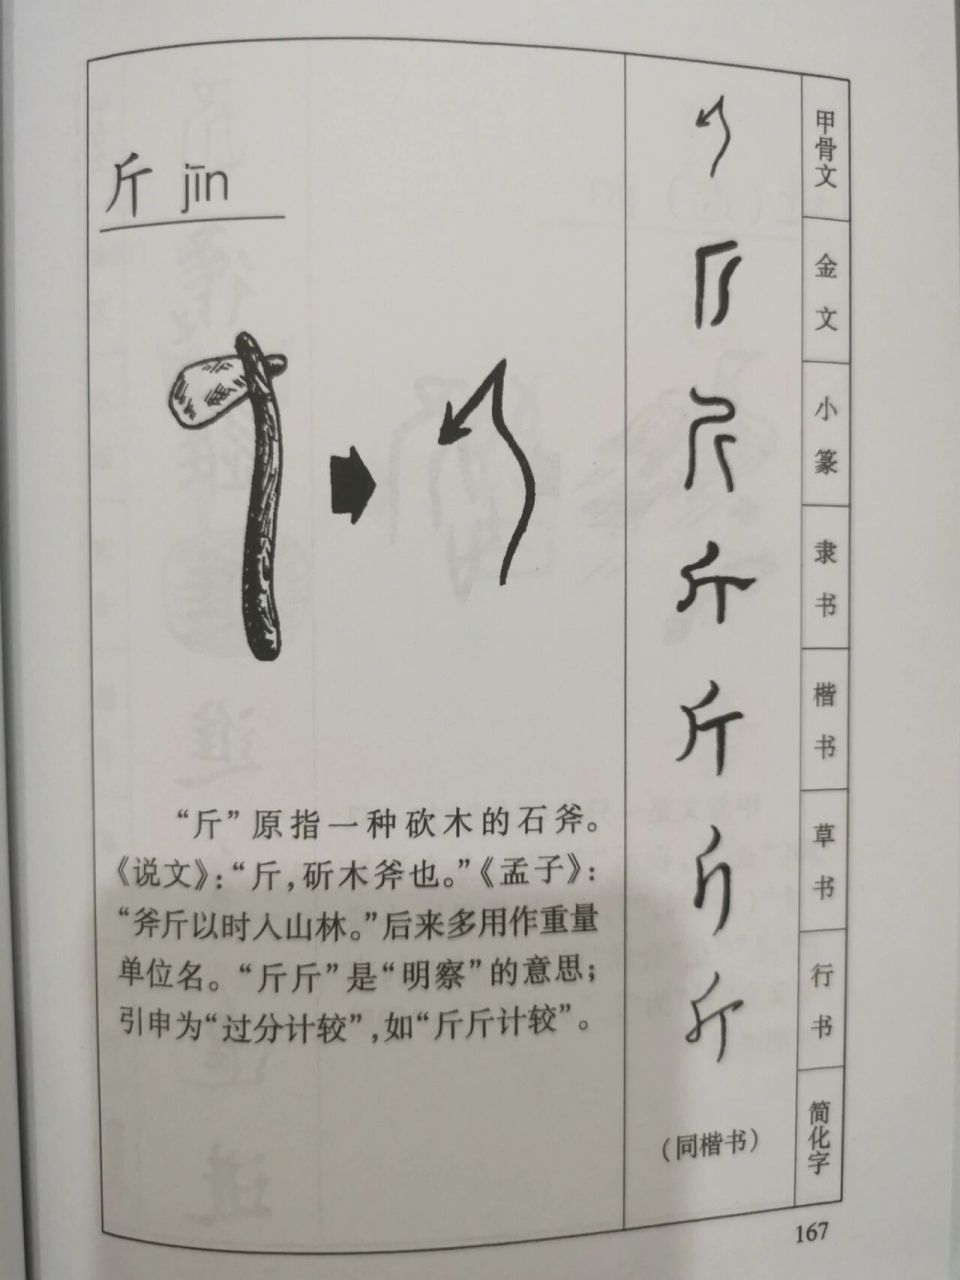 斤 jīn
“斤”原指一种砍木的石斧。
《说文》：“斤，斫木斧也。”《孟子》：
“斧斤以时入山林。”后来多用作重量
单位名。“斤斤”是“明察”的意思；
引申为“过分计较”，如“斤斤计较”。
甲骨文
金文
小篆
隶书
斤
楷书
斤
草书
斤
行书
斤
简化字
（同楷书）
167